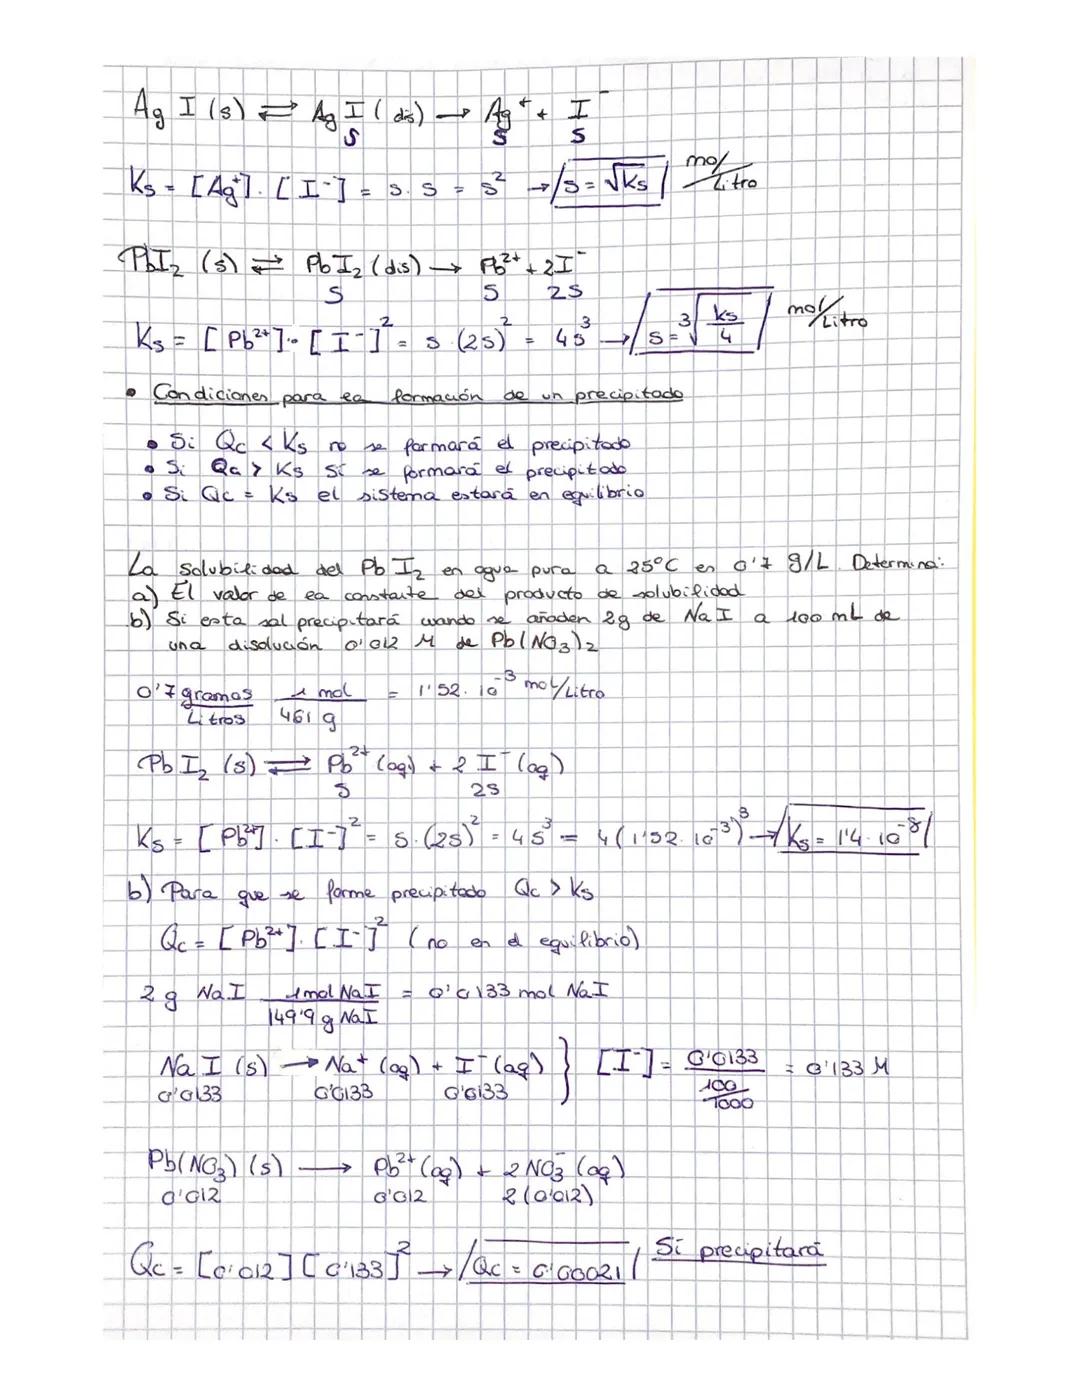 Ag I (s) ⇌ Ag I (dis) → Ag⁺ + I⁻
S S S
Ks = [Ag⁺]. [I⁻] = s. s = s² → s = √Ks mol/Litro
PbI₂ (s) ⇌ PbI₂ (dis) → Pb²⁺ + 2I⁻
S S 2S
Ks = [Pb²⁺]. [I⁻]² = s. (2s)² = 4s³ → s = ³√(Ks/4) mol/Litro
• Condiciones para la formación de un precipitado
• Si Qc < Ks no se formará el precipitado
• Si Qc > Ks sí se formará el precipitado
• Si Qc = Ks el sistema estará en equilibrio
La solubilidad del Pb I₂ en agua pura a 25ºC es 0'7 g/L. Determina:
a) El valor de la constante del producto de solubilidad
b) Si esta sal precipitará cuando se añaden 2g de NaI a 100 mL de
una disolución 0'012 M de Pb(NO₃)₂
0'7 gramos/Litros 1 mol/461 g = 1'52. 10⁻³ mol/Litro
Pb I₂ (s) ⇌ Pb²⁺ (aq) + 2 I⁻ (aq)
S 2S
Ks = [Pb²⁺]. [I⁻]² = s. (2s)² = 4s³ = 4(1'52. 10⁻³)³ → Ks = 1'4. 10⁻⁸
b) Para que se forme precipitado Qc > Ks
Qc = [Pb²⁺]. [I⁻]² (no en el equilibrio)
2 g NaI 1 mol NaI/149'9 g NaI = 0'0133 mol NaI
Na I (s) → Na⁺ (aq) + I⁻ (aq) } [I⁻] = 0'0133/(100/1000) = 0'133 M
0'0133 0'0133 0'0133
Pb(NO₃) (s) → Pb²⁺ (aq) + 2 NO₃⁻ (aq)
0'012 0'012 2(0'012)
Qc = [0'012] [0'133]² → Qc = 0'00021 Sí precipitará